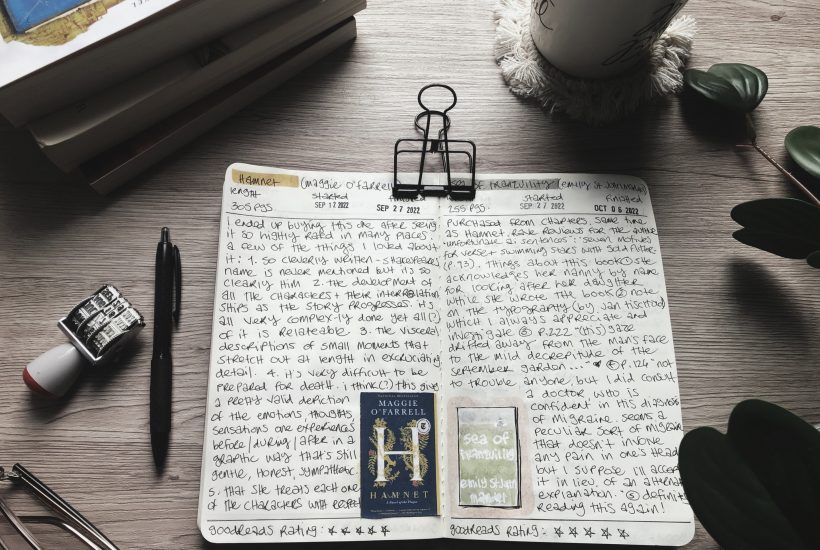 Hamnet (maggie o'farrell
length started finished
305 pgs SEP 12 2022 SEP 27 2022
i ended up buying this one after seeing
it so highly rated in many places.
a few of the things i loved about
it: 1. so cleverly written - shakespeare's
name is never mentioned but it's so
clearly him 2. the development of
all the characters + their interrelation
ships as the story progresses. it's
all very complexly done yet all (?)
of it is relateable 3. the visceral
descriptions of small moments that
stretch out at length in excruciating
detail. 4. it's very difficult to be
prepared for death. i think (?) this gives
a pretty valid depiction
of the emotions, thoughts,
sensations one experiences
before/during/after in a
graphic way that's still
gentle, honest, sympathetic.
5. that she treats each one
of the characters with respect
MAGGIE
O'FARRELL
H
HAMNET
goodreads rating: ☆ ☆ ☆ ☆ ☆
sea of tranquility (emily st. john mandel)
started finished
255 pgs. SEP 27 2022 OCT 06 2022
purchased from chapters same time
as Hamnet. rave reviews for the author
unfortunate ai sentences: "seven motives
for verse + swimming stars with
(p. 73). things about this book: ① she
acknowledges her nanny by name
for looking after her daughter
while she wrote the book ② note
on the typography (by jan tischold)
which I always appreciate and
investigate ③ p. 222 "(his) gaze
drifted away from the man's face
to the mild decrepitude of the
september garden..." ♥ ④ p. 126 "not
to trouble anyone, but I did consult
a doctor, who is
confident in his diagnosis
of migraine. seems a
peculiar sort of migraine
that doesn't involve
any pain in one's head
but I suppose i'll accept
it in lieu of an alternate
explanation." ⑤ definitely
reading this again!
sea of
tranquility
emily st. john
mandel
goodreads rating: ☆ ☆ ☆ ☆ ☆